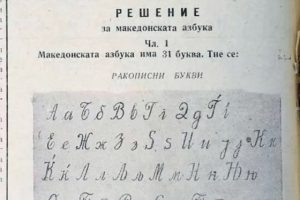 РЕШЕНИЕ
за македонската азбука
Чл. 1
Македонската азбука има 31 буква. Тие се:
РАКОПИСНИ БУКВИ
А а Б б В в Г г Д д Ѓ ѓ
Е е Ж ж З з Ѕ ѕ И и Ј ј К к
Ќ ќ Л л Љ љ М м Н н Њ њ